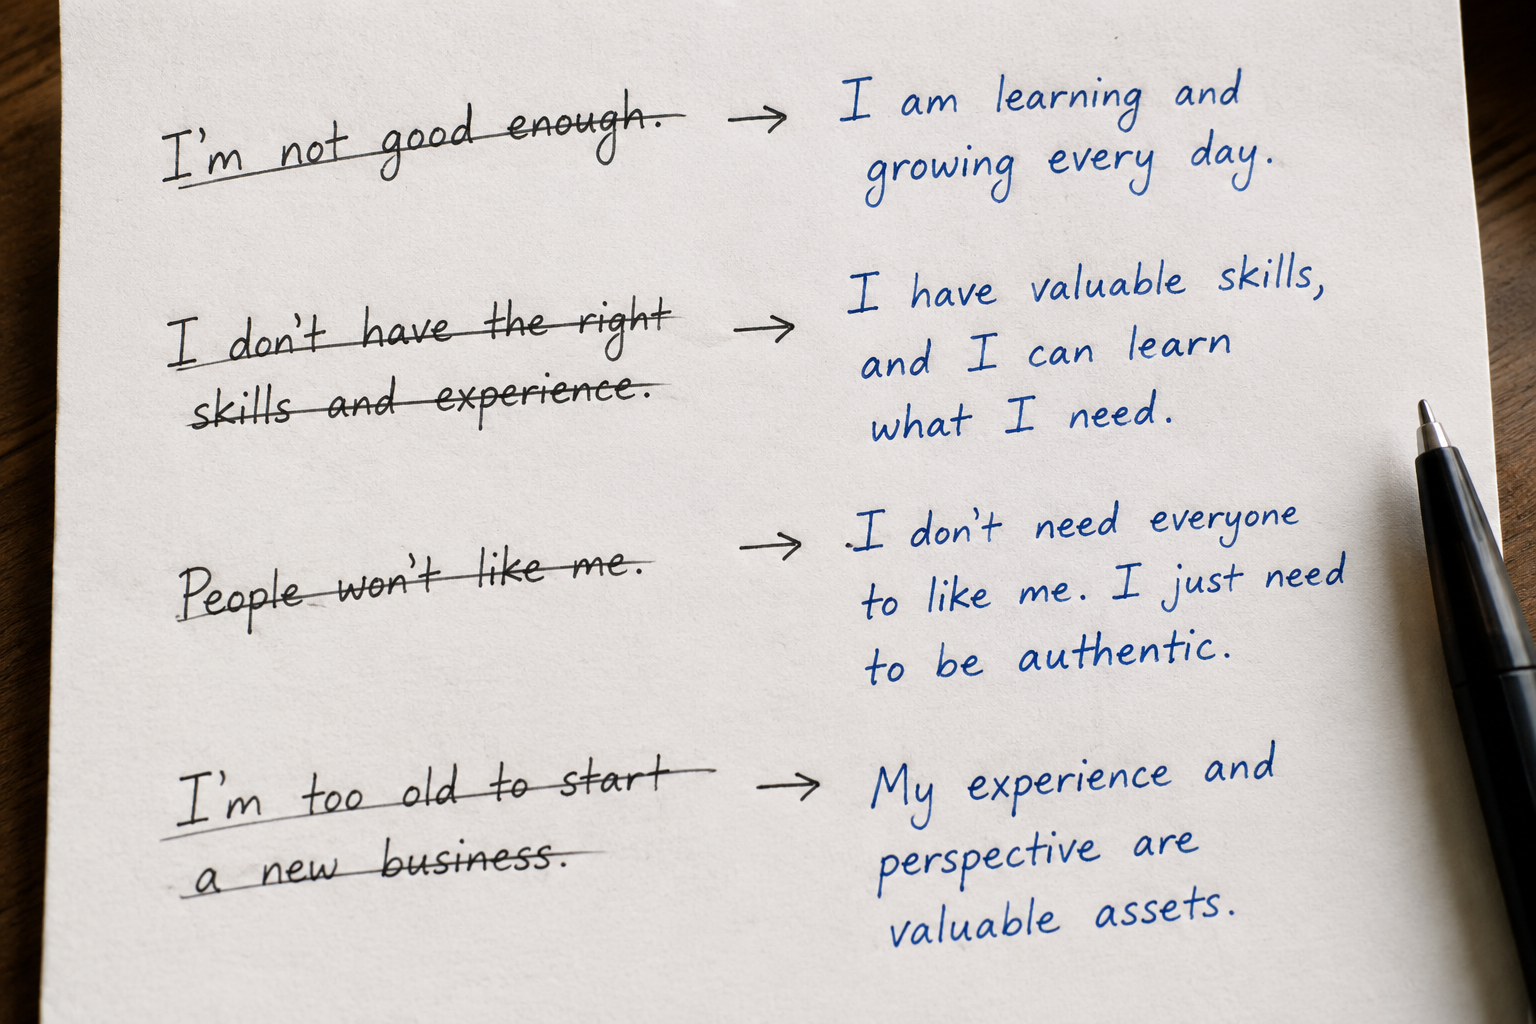 I'm not good enough. → I am learning and
growing every day.
I don't have the right → I have valuable skills,
skills and experience. and I can learn
what I need.
People won't like me. → I don't need everyone
to like me. I just need
to be authentic.
I'm too old to start → My experience and
a new business. perspective are
valuable assets.